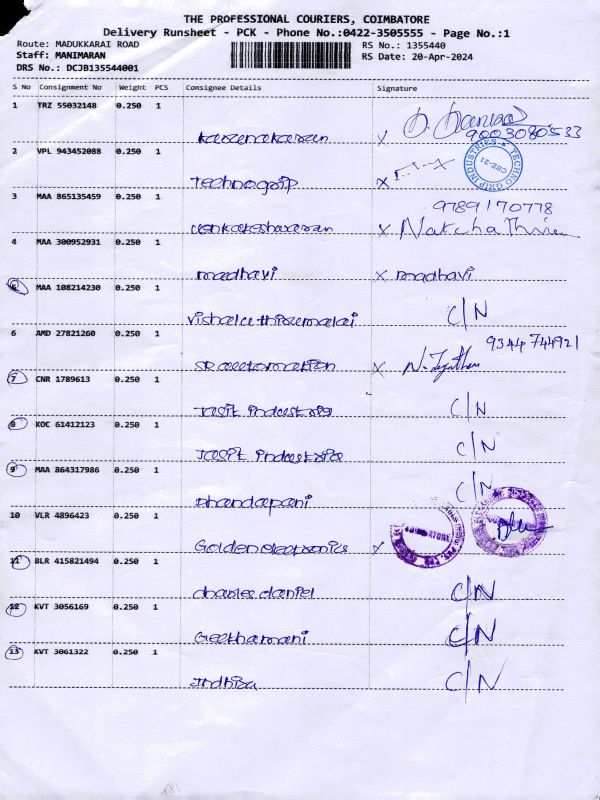 THE PROFESSIONAL COURIERS, COIMBATORE
Delivery Runsheet - PCK - Phone No.:0422-3505555 - Page No.:1
Route: MADUKKARAI ROAD
RS No.: 1355440
Staff: MANIMARAN
RS Date: 20-Apr-2024
DRS No.: DCJB135544001
S No Consignment No Weight PCS Consignee Details Signature
1 TRZ 55032148 0.250 1
Karunakaran x
9003080533
2 VPL 943452088 0.250 1
Technogrip x
TECHNO GRIP INDUSTRIES
CBE-21
3 MAA 865135459 0.250 1
9789170778
Venkateshwaran x
4 MAA 300952931 0.250 1
madhavi x madhavi
5 MAA 108214230 0.250 1
C/N
6 AMD 27821260 0.250 1
9344 744921
SR automation x
7 CNR 1789613 0.250 1
Industries C/N
8 KOC 61412123 0.250 1
Industries C/N
9 MAA 864317986 0.250 1
Dhandapani C/N
10 VLR 4896423 0.250 1
Golden electronics x
11 BLR 415821494 0.250 1
charles daniel C/N
12 KVT 3056169 0.250 1
Geethamani C/N
13 KVT 3061322 0.250 1
Indhira C/N